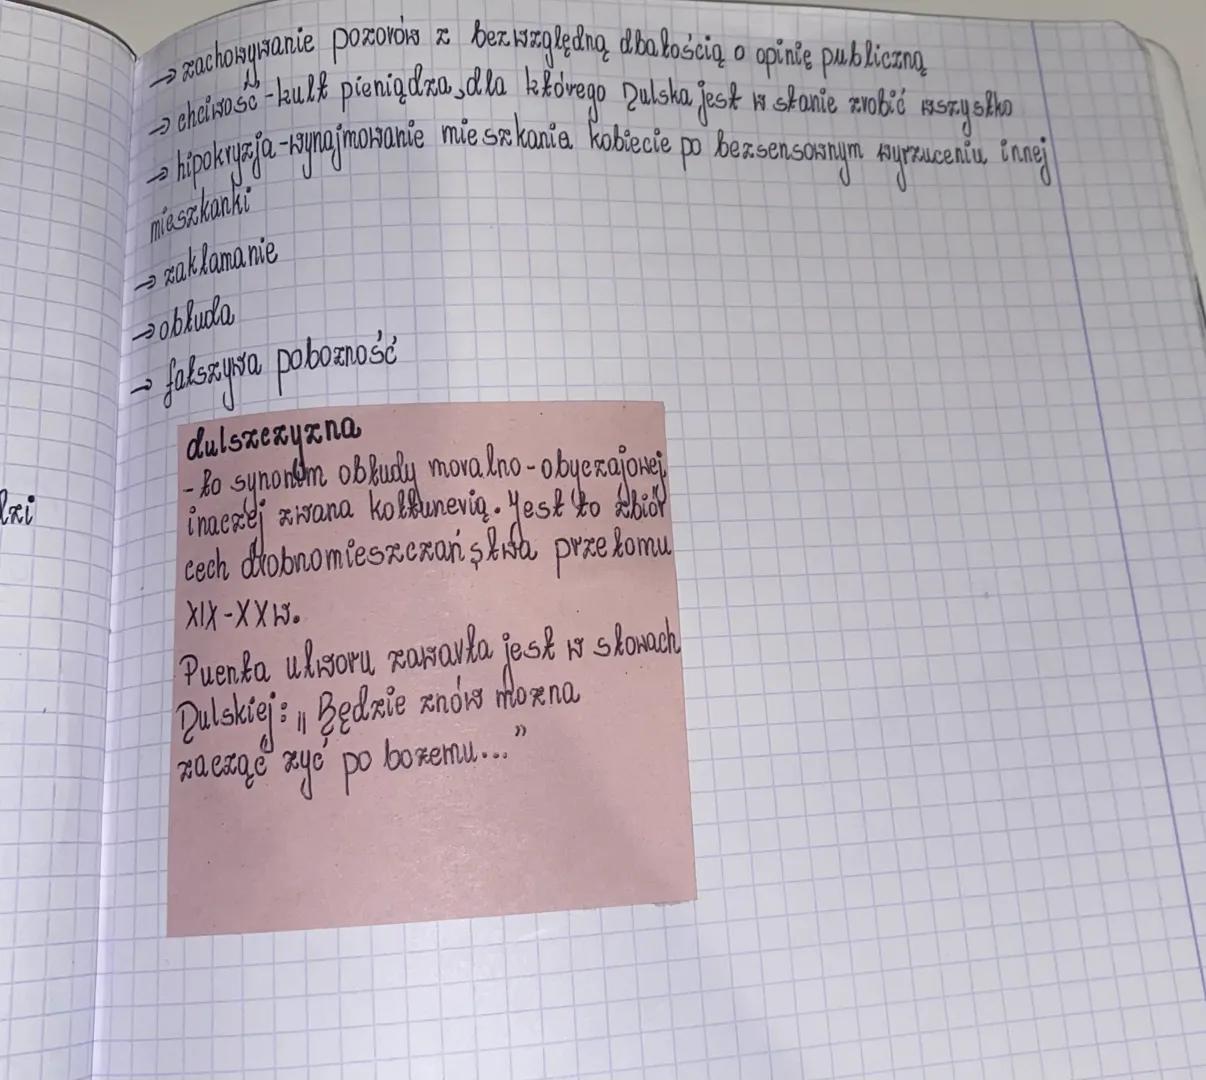 → zachowywanie pozorów z bezwzględną dbałością o opinię publiczną
→ chciwość - kult pieniądza, dla którego Dulska jest w stanie zrobić wszystko
→ hipokryzja - wynajmowanie mieszkania kobiecie po bezsensownym wyrzuceniu innej
mieszkanki
→ zakłamanie
→ obłuda
→ fałszywa pobożność
dulszczyzna
- to synonim obłudy moralno - obyczajowej
inaczej zwana kołtunerią. Jest to zbiór
lzi
cech drobnomieszczaństwa przełomu
XIX - XX w.
Puenta utworu zawarta jest w słowach
Dulskiej: „Będzie znów można
zacząć żyć po bożemu..."